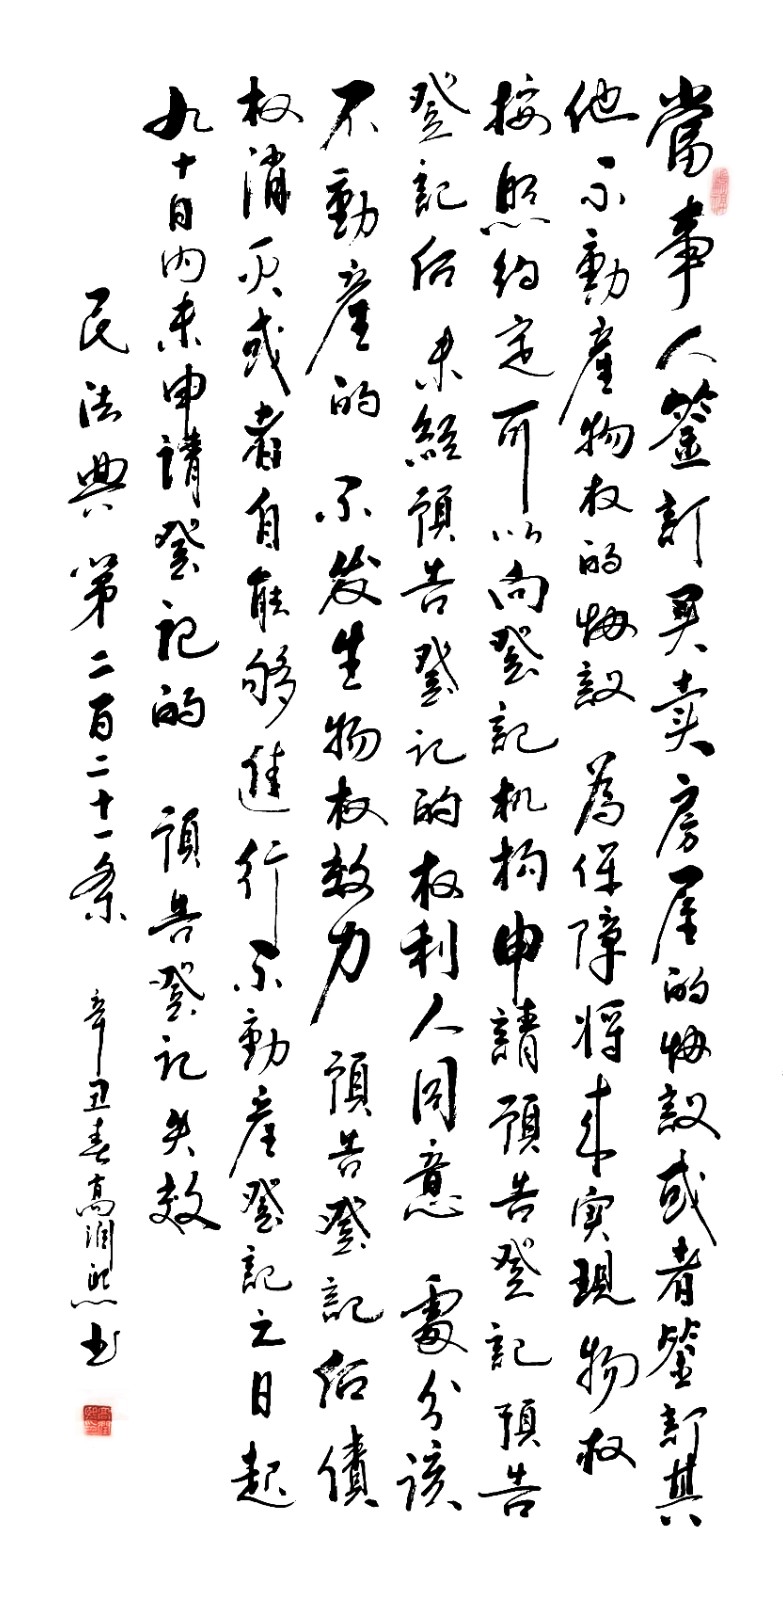 當事人签訂買卖房屋的协議或者签訂其
他不動產物权的协議 為保障将来实現物权
按照约定可以向登記机构申請預告登記預告
登記后 未經預告登记的权利人同意 處分該
不動產的 不发生物权效力 預告登記后債
权消灭或者自能够進行不動產登記之日起
九十日内未申請登记的 預告登记失效
民法典第二百二十一条 辛丑春高润熙书